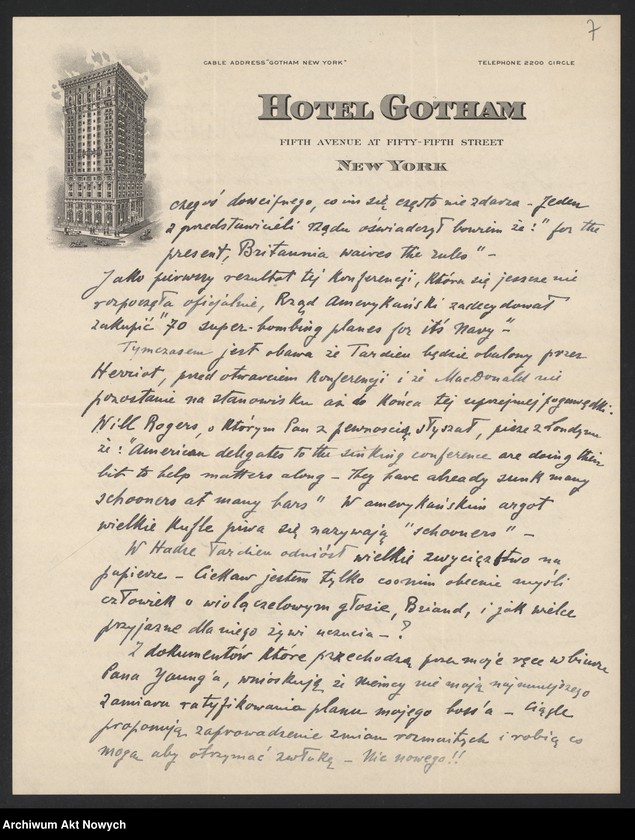 7
CABLE ADDRESS "GOTHAM NEW YORK"
TELEPHONE 2200 CIRCLE
HOTEL GOTHAM
FIFTH AVENUE AT FIFTY-FIFTH STREET
NEW YORK
czegoś dowcipnego, co im się często nie zdarza – Jeden
z przedstawicieli rządu oświadczył bowiem że: "for the
present, Britannia waives the rules" –
Jako pierwszy rezultat tej Konferencji, która się jeszcze nie
rozpoczęła oficjalnie, Rząd Amerykański zadecydował
zakupić "70 super-bombing planes for it's Navy" –
Tymczasem jest obawa że Tardieu będzie obalony przez
Herriot, przed otwarciem Konferencji i że MacDonald nie
pozostanie na stanowisku aż do Końca tej uprzejmej pogawędki.
Will Rogers, o którym Pan z pewnością słyszał, pisze z Londynu
że: "American delegates to the sinking conference are doing their
bit to help matters along – They have already sunk many
schooners at many bars" W amerykańskim argot
wielkie Kufle piwa się nazywają "schooners" –
W Hadze Tardieu odniósł wielkie zwycięztwo na
papierze – Ciekaw jestem tylko co o nim obecnie myśli
człowiek o wiolączelowym głosie, Briand, i jak wielce
przyjazne dla niego żywi uczucia – ?
Z dokumentów które przechodzą przez moje ręce w biurze
Pana Young'a, wnioskuję że Niemcy nie mają najmniejszego
zamiaru ratyfikowania planu mojego boss'a – Ciągle
proponują zaprowadzenie zmian rozmaitych i robią co
mogą aby otrzymać zwłokę – Nic nowego!!
Archiwum Akt Nowych